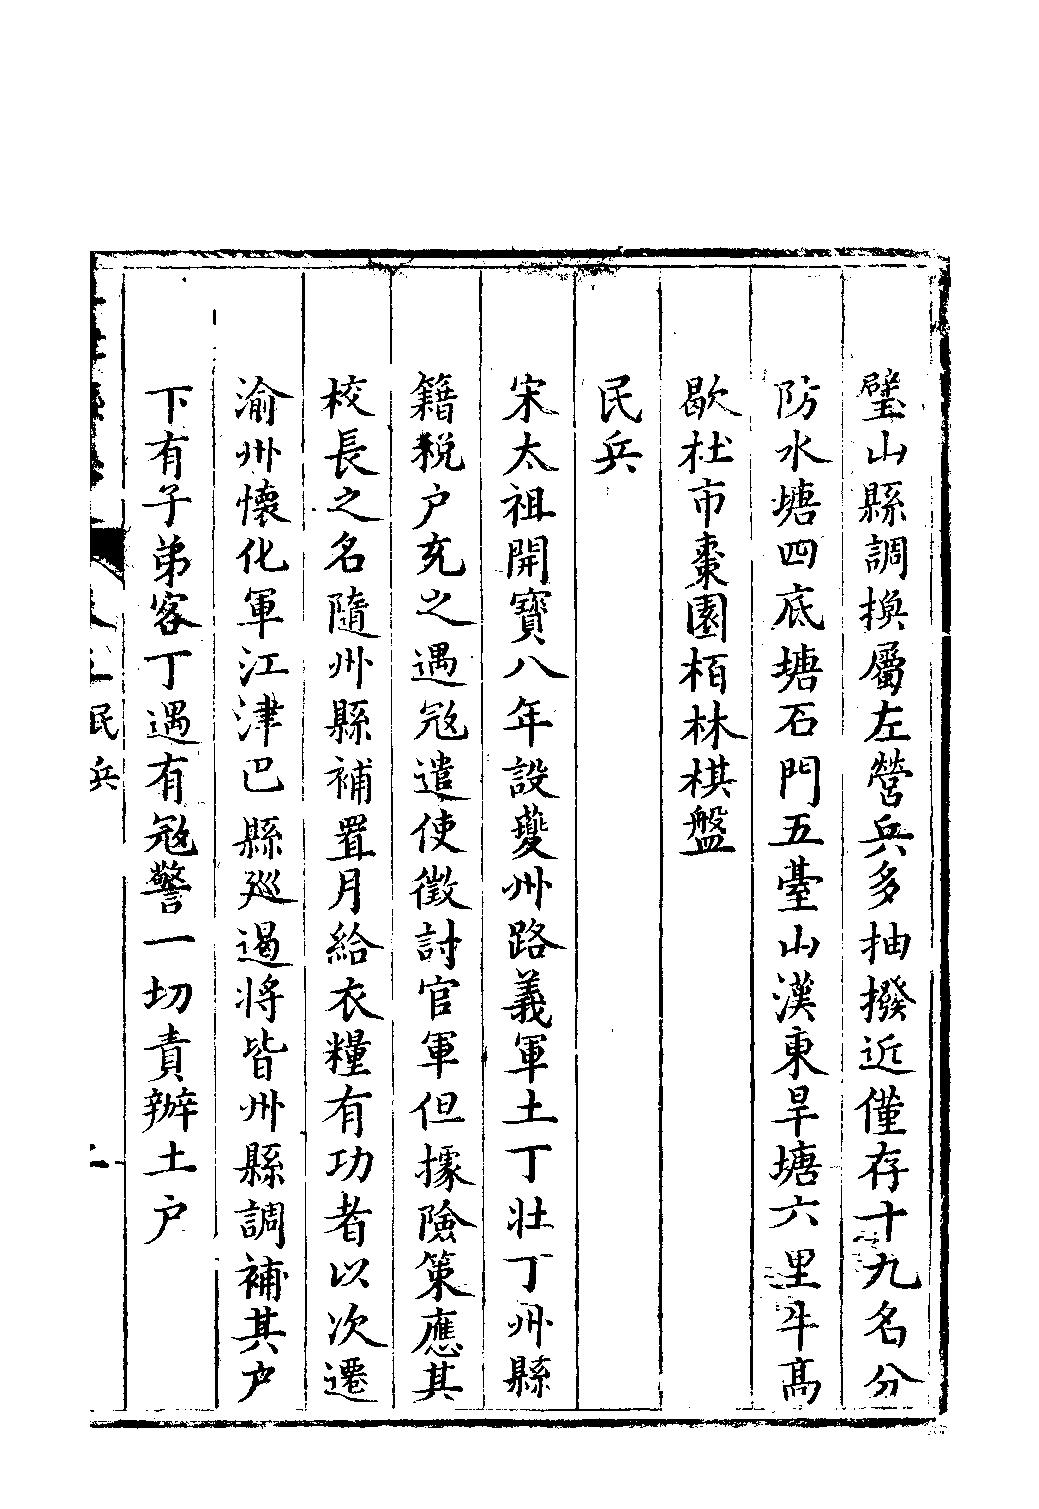 璧山縣調換屬左營兵多抽撥近僅存十九名分
防水塘四底塘石門五臺山漢東旱塘六里牛高
歇杜市棗園栢林棋盤
民兵
宋太祖開寶八年設夔州路義軍土丁壯丁州縣
籍稅户充之遇冦遣使徵討官軍但據險策應其
校長之名隨州縣補置月給衣糧有功者以次遷
渝州懷化軍江津巴縣廵遏將皆州縣調補其户
下有子弟客丁遇有冦警一切責辦土户
民兵